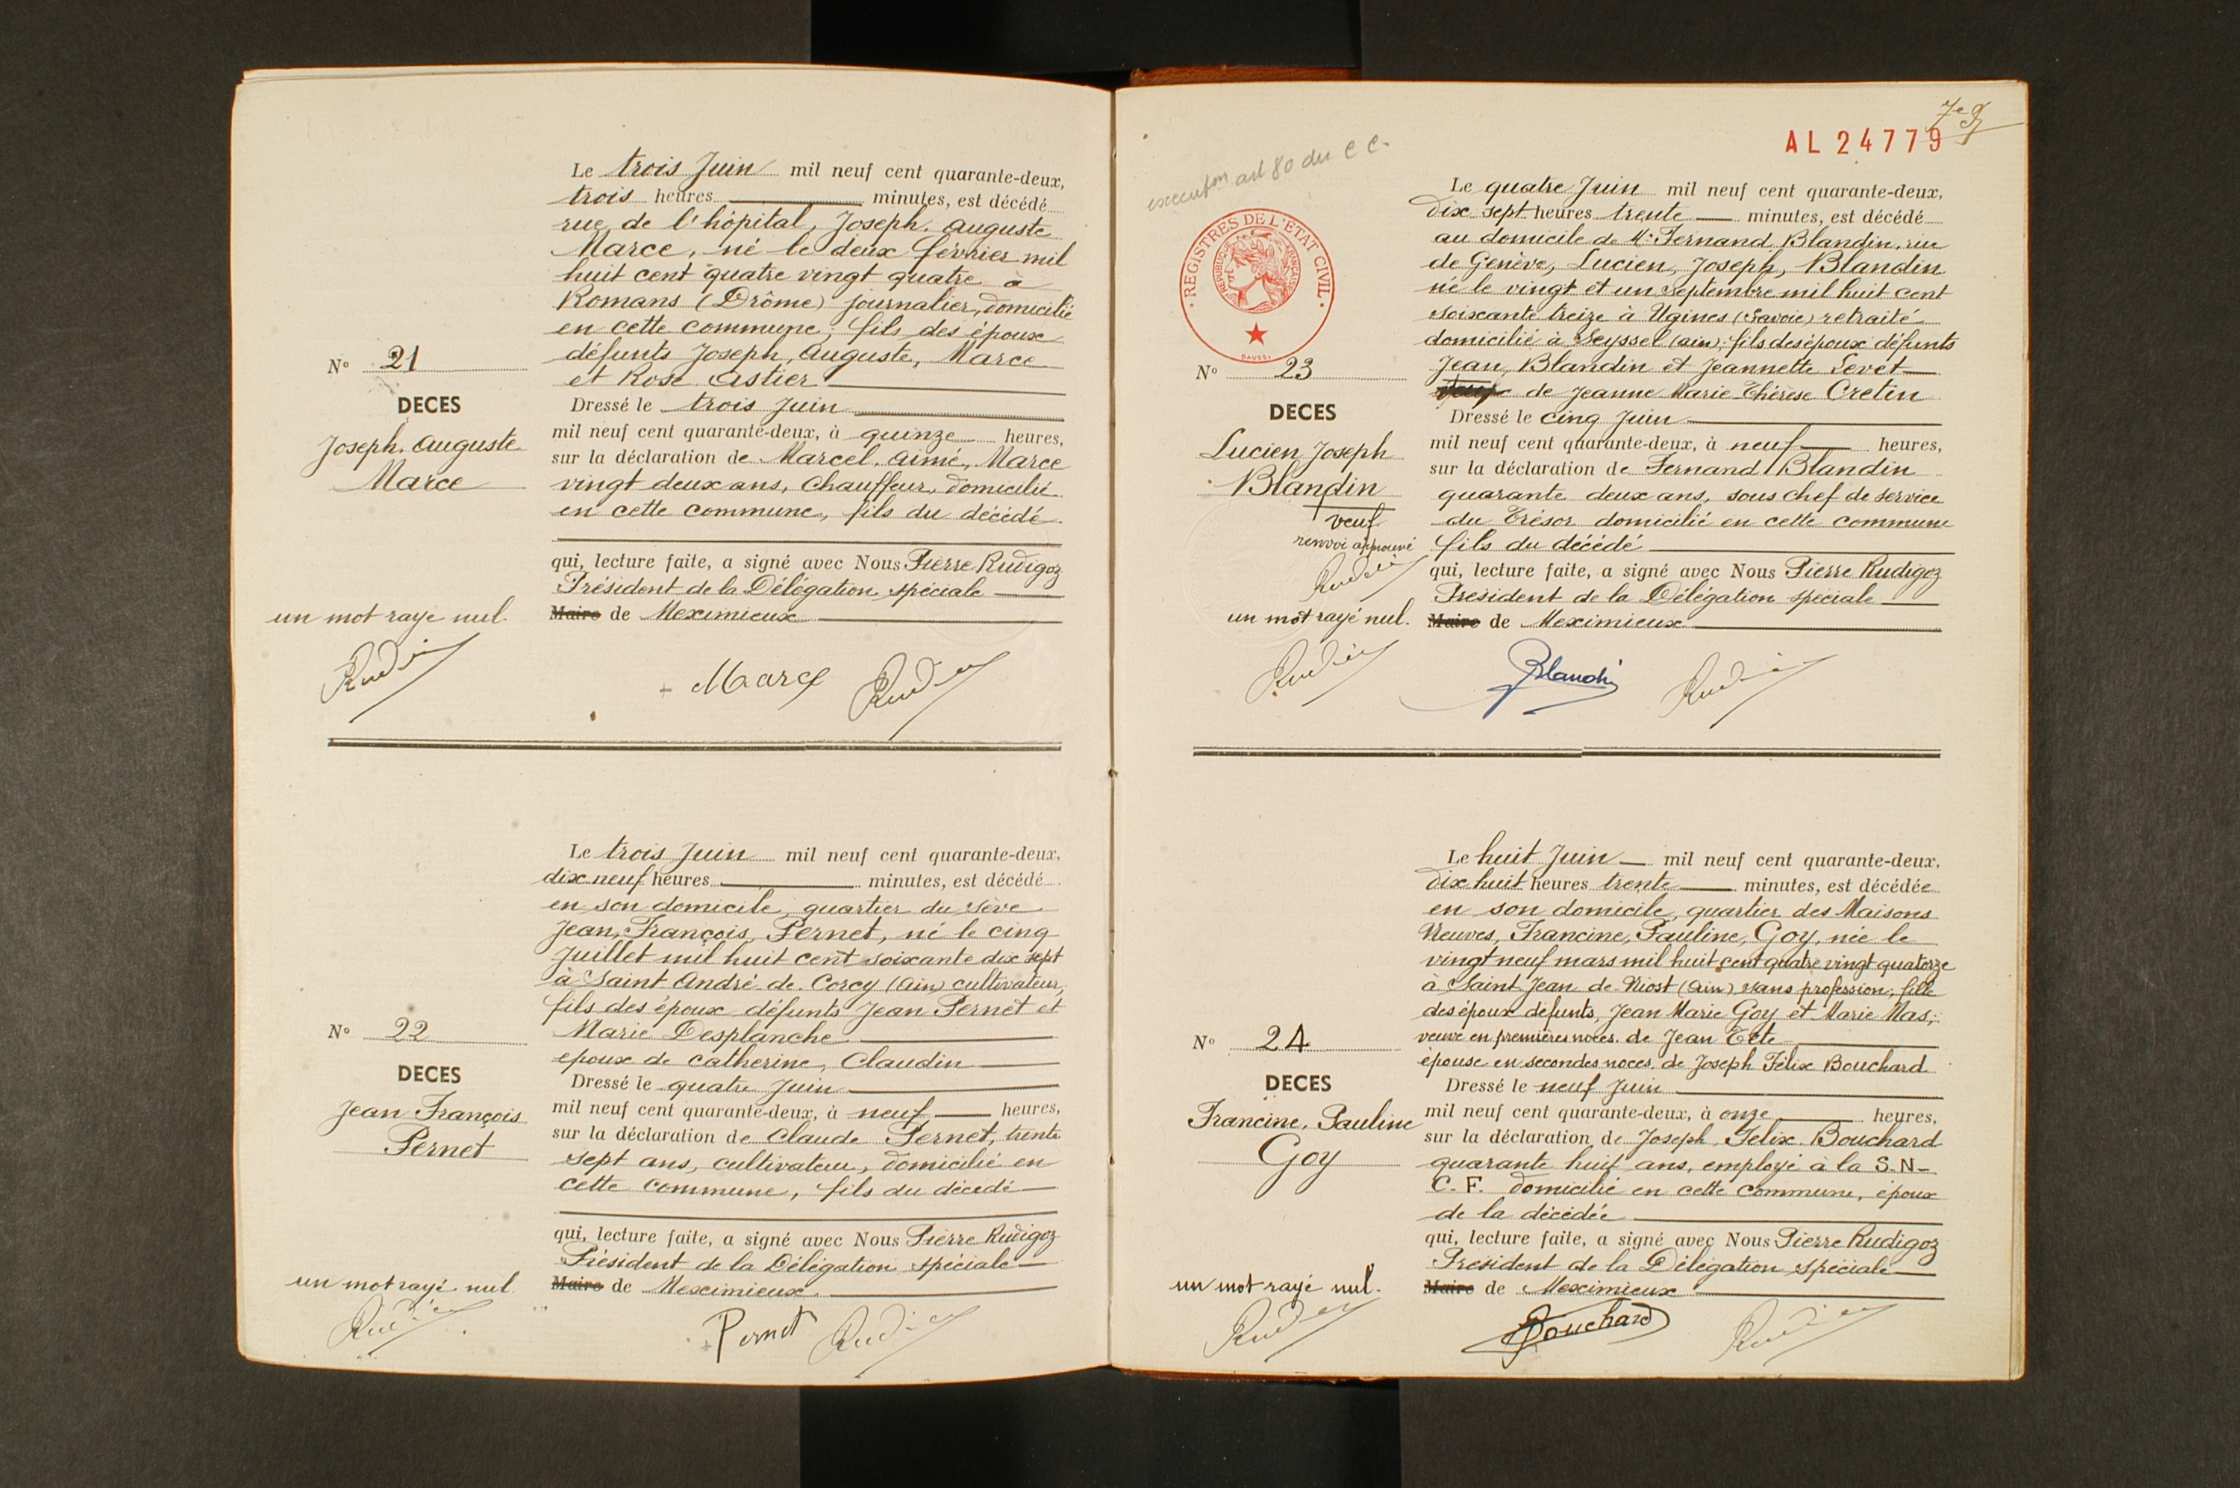 Le trois Juin mil neuf cent quarante-deux,
trois heures minutes, est décédé
rue de l'hôpital, Joseph, Auguste
Marce, né le deux février mil
huit cent quatre vingt quatre à
Romans (Drôme) journalier, domicilié
en cette commune, fils des époux
défunts Joseph, Auguste, Marce
et Rose Astier
N° 21
DECES
Joseph, Auguste
Marce
Dressé le trois Juin
mil neuf cent quarante-deux, à quinze heures,
sur la déclaration de Marcel, Aimé, Marce
vingt deux ans, Chauffeur, domicilié
en cette commune, fils du décédé.
qui, lecture faite, a signé avec Nous Pierre Rudigoz
Président de la Délégation spéciale
Maire de Meximieux
un mot rayé nul.
Marce
Le trois Juin mil neuf cent quarante-deux,
dix neuf heures minutes, est décédé
en son domicile, quartier du
Jean, François, Pernet, né le cinq
Juillet mil huit cent soixante dix sept
à Saint André de Corcy (Ain) cultivateur,
fils des époux défunts Jean Pernet et
Marie Desplanche
époux de Catherine, Claudin
N° 22
DECES
Jean François
Pernet
Dressé le quatre Juin
mil neuf cent quarante-deux, à neuf heures,
sur la déclaration de Claude Pernet, trente
sept ans, cultivateur, domicilié en
cette commune, fils du décédé
qui, lecture faite, a signé avec Nous Pierre Rudigoz
Président de la Délégation spéciale
Maire de Meximieux
un mot rayé nul
Pernet
AL 24779
art 80 du C C.
REGISTRES DE L'ETAT CIVIL
REPUBLIQUE FRANÇAISE
Le quatre Juin mil neuf cent quarante-deux,
Dix sept heures trente minutes, est décédé
au domicile de Mr Fernand Blandin, rue
de Genève, Lucien, Joseph, Blandin
né le vingt et un septembre mil huit cent
soixante treize à Ugines (Savoie) retraité
domicilié à Seyssel (Ain), fils des époux défunts
Jean, Blandin et Jeannette Levet
de Jeanne Marie Thérèse Cretin
N° 23
DECES
Lucien Joseph
Blandin
veuf
renvoi approuvé
Dressé le cinq Juin
mil neuf cent quarante-deux, à neuf heures,
sur la déclaration de Fernand Blandin
quarante deux ans, sous chef de service
du Trésor domicilié en cette commune
fils du décédé
qui, lecture faite, a signé avec Nous Pierre Rudigoz
Président de la Délégation spéciale
Maire de Meximieux
un mot rayé nul.
Blandin
Le huit Juin mil neuf cent quarante-deux,
Dix huit heures trente minutes, est décédée
en son domicile, quartier des Maisons
Neuves, Francine, Pauline, Goy, née le
vingt neuf mars mil huit cent quatre vingt quatorze
à Saint Jean de Niost (Ain) sans profession, fille
des époux défunts, Jean Marie Goy et Marie Mas;
veuve en premières noces de Jean Tête
épouse en secondes noces de Joseph Félix Bouchard
N° 24
DECES
Francine, Pauline
Goy
Dressé le neuf Juin
mil neuf cent quarante-deux, à onze heures,
sur la déclaration de Joseph Félix Bouchard
quarante huit ans, employé à la S.N-
C.F. domicilié en cette commune, époux
de la décédée
qui, lecture faite, a signé avec Nous Pierre Rudigoz
Président de la Délégation spéciale
Maire de Meximieux
un mot rayé nul.
Bouchard